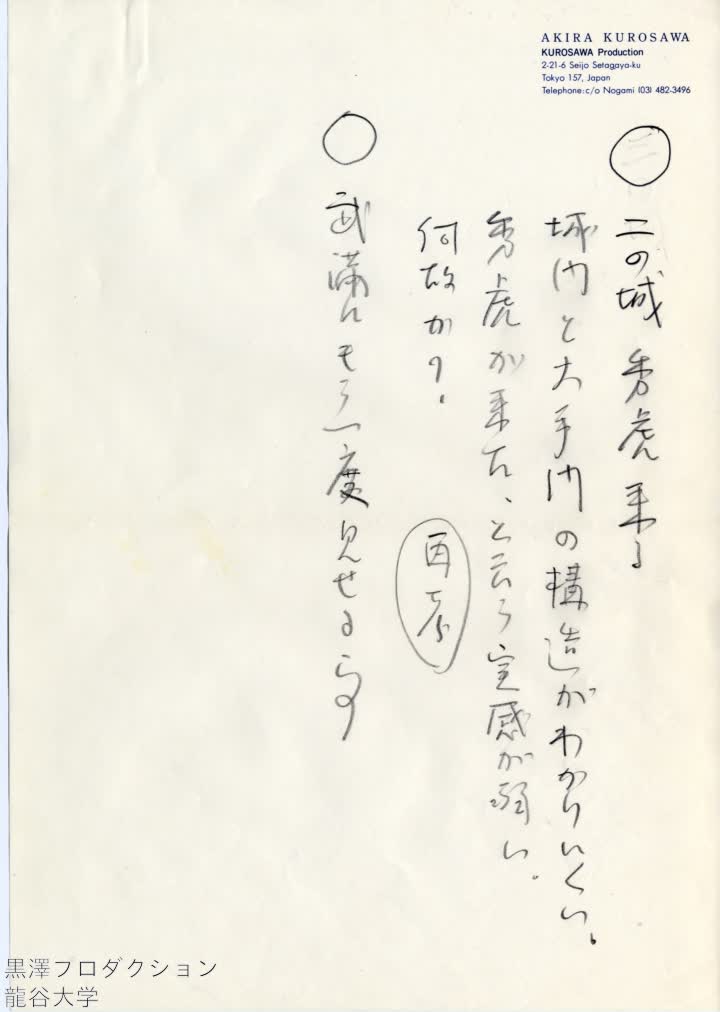 AKIRA KUROSAWA
KUROSAWA Production
2-21-6 Seijo Setagaya-ku
Tokyo 157, Japan
Telephone:c/o Nogami (03) 482-3496
二の城 秀虎 来る
塀内と大手門の構造がわかりにくい。
秀虎が来た、と云う実感が弱い。
何故か?
再考
武満にもう一度見せる事
黒澤プロダクション
龍谷大学